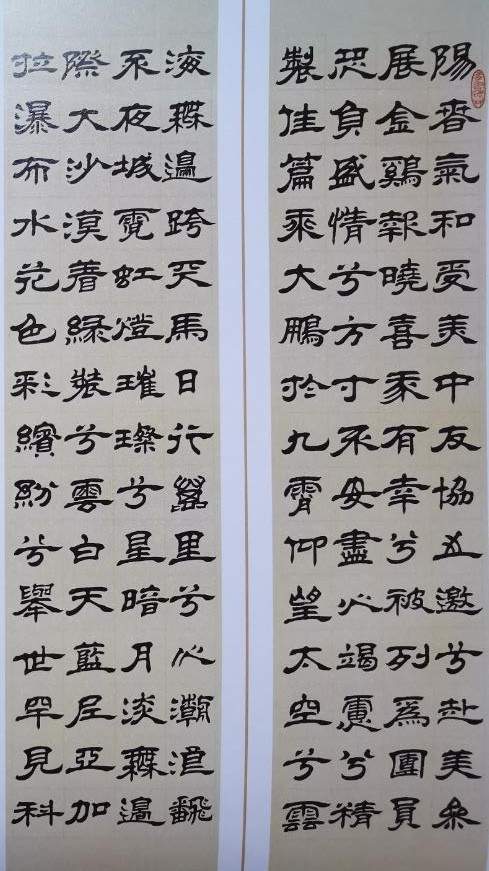 陽春氣和受美中友協之邀兮赴美參
展金鷄報曉喜有幸兮被列爲團員
恐負盛情兮方寸不安盡心竭慮兮精
製佳篇乘大鵬於九霄仰望太空兮雲
海無邊跨天馬日行萬里兮心潮浪翻
不夜城霓虹燈璀璨兮星暗月淡無邊
際大沙漠着綠裝兮雲白天藍尼亞加
拉瀑布水花色彩繽紛兮舉世罕見科